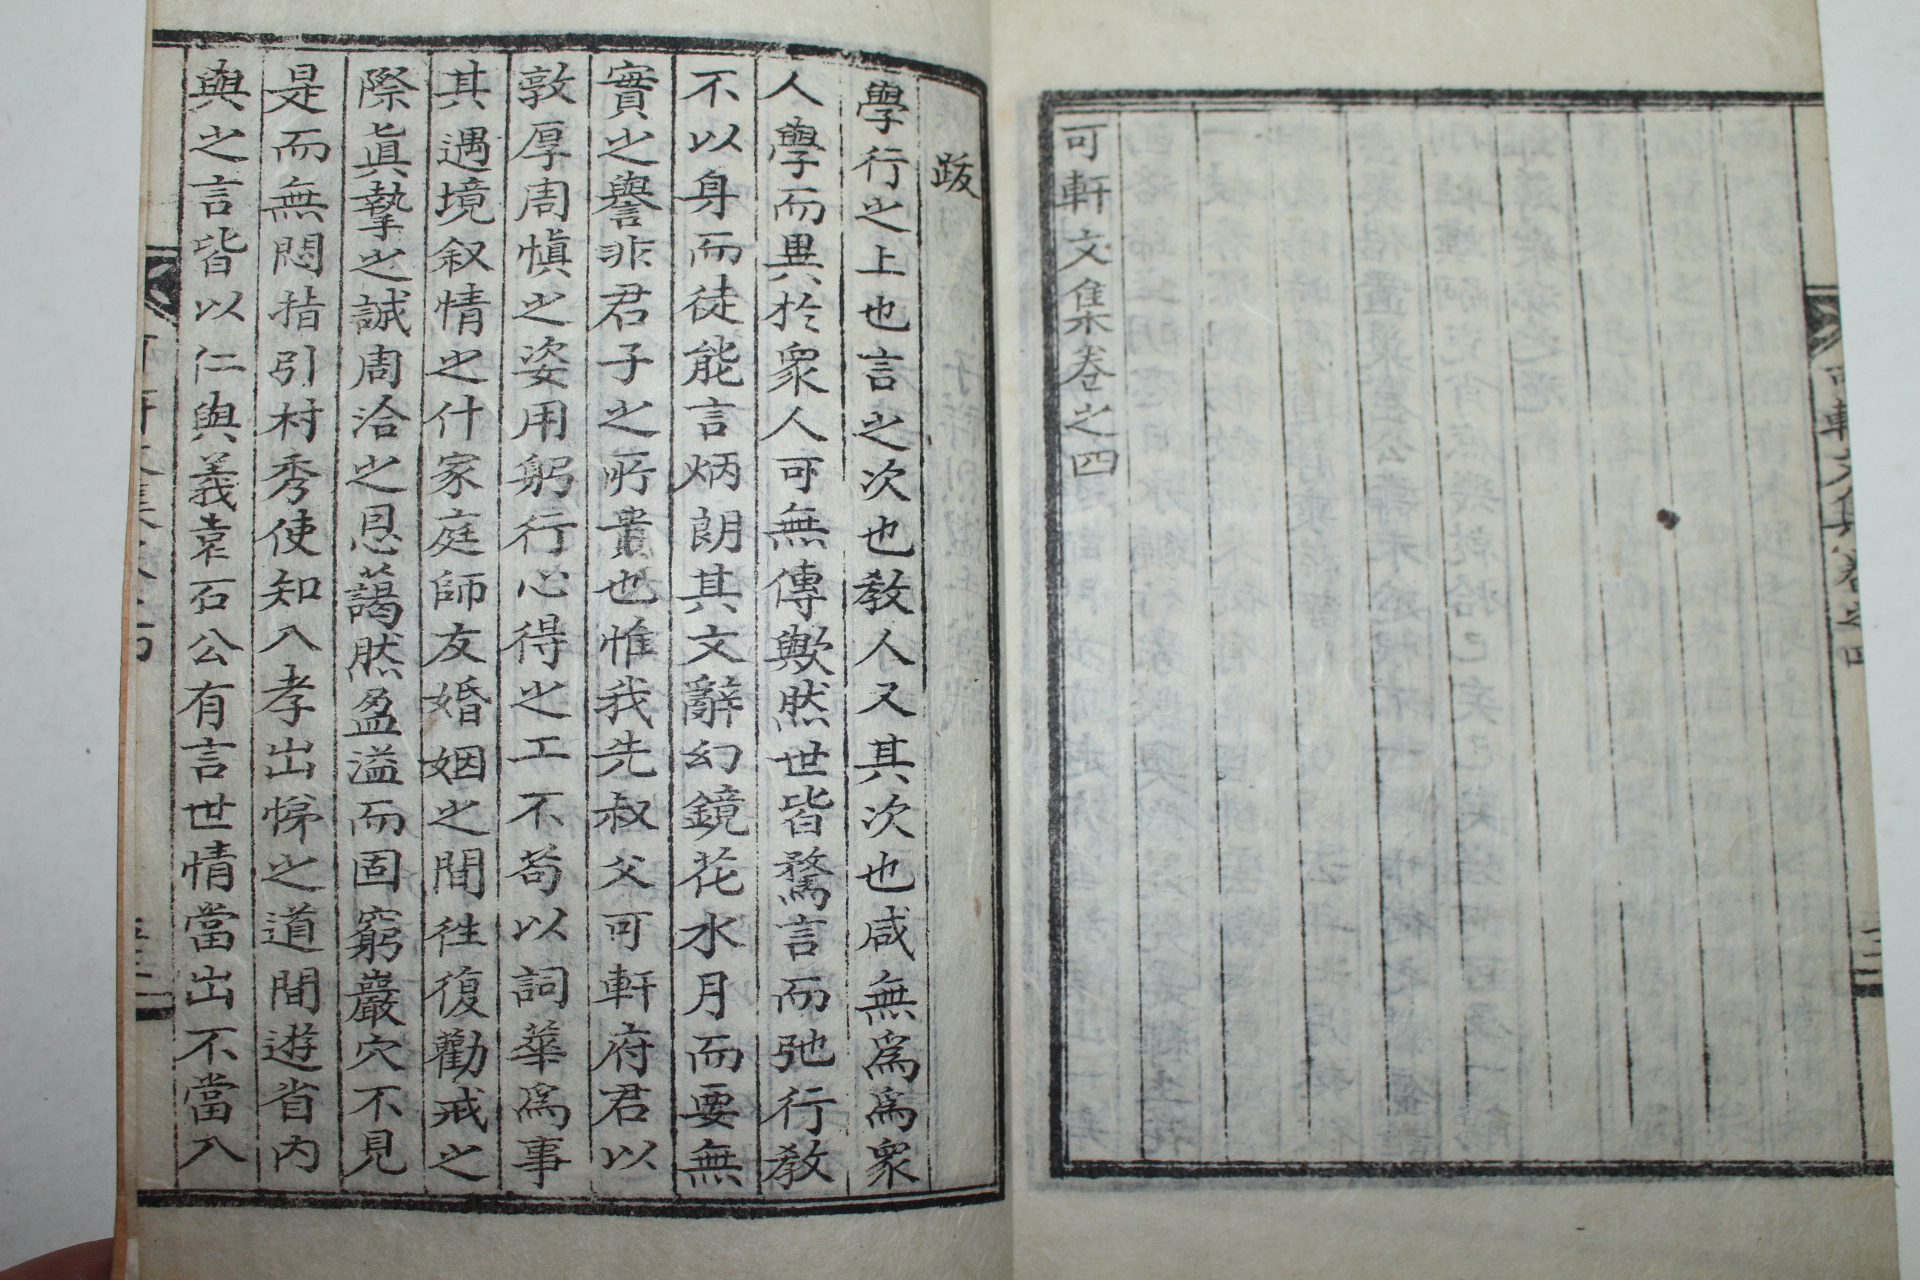 可軒文集卷之四
可軒文集卷之四
跋
學行之上也言之次也敎人又其次也咸無爲爲衆
人學而異於衆人可無傳歟然世皆騖言而弛行敎
不以身而徒能言炳朗其文辭幻鏡花水月而要無
實之譽非君子之所貴也惟我先叔父可軒府君以
敦厚周愼之姿用躬行心得之工不苟以詞華爲事
其遇境叙情之什家庭師友婚姻之間往復勸戒之
際眞摯之誠周洽之恩藹然盈溢而固窮巖穴不見
是而無悶指引村秀使知入孝出悌之道間遊省內
與之言皆以仁與義韋石公有言世情當出不當入